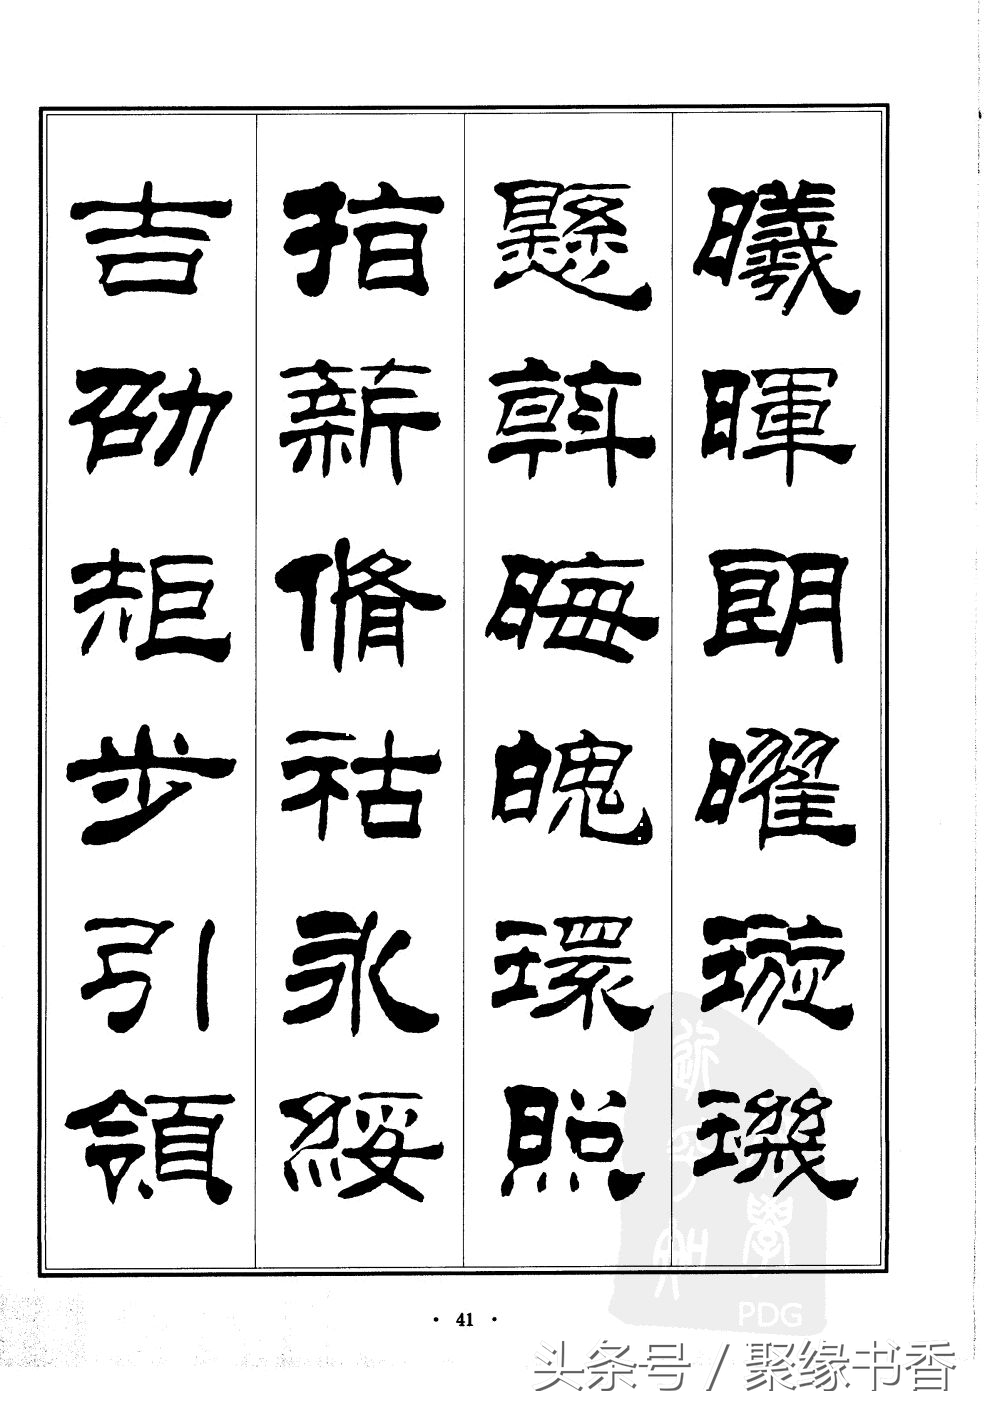 曦暉朗曜璇璣
懸斡晦魄環照
指薪脩祜永綏
吉劭矩步引領
· 41 ·
PDG
头条号 / 聚缘书香